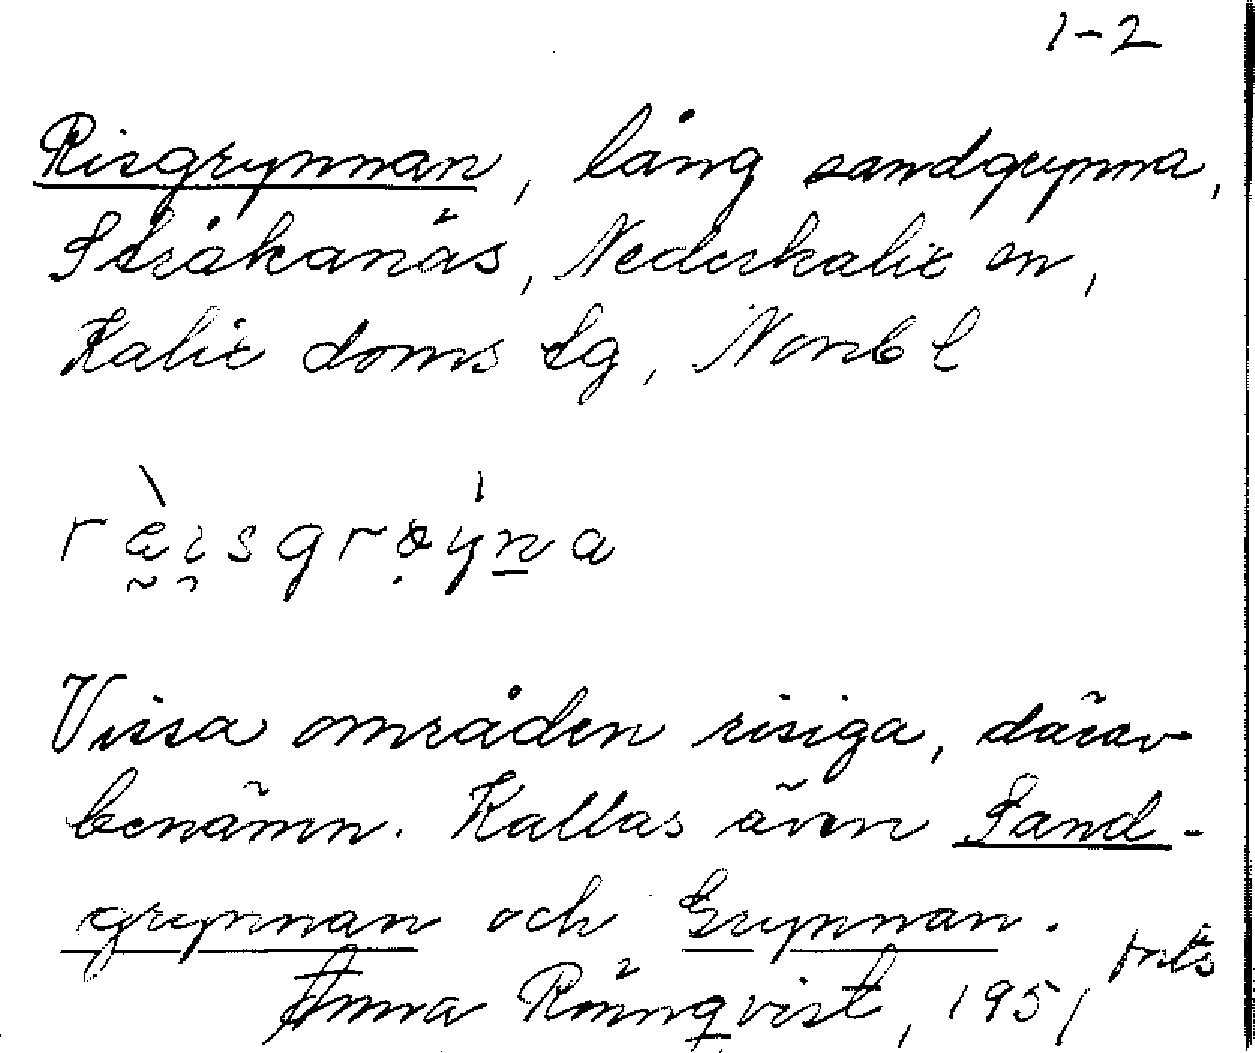 1-2
Risgrynnan, lång sandgrynna,
Stråkanäs, Nederkalix sn,
Kalix doms lg, Norrb l
ræisgrøyna
Vissa områden risiga, därav
benämn. Kallas även Sand-
grynnan och Grynnan.
forts
Anna Rönnqvist, 1951